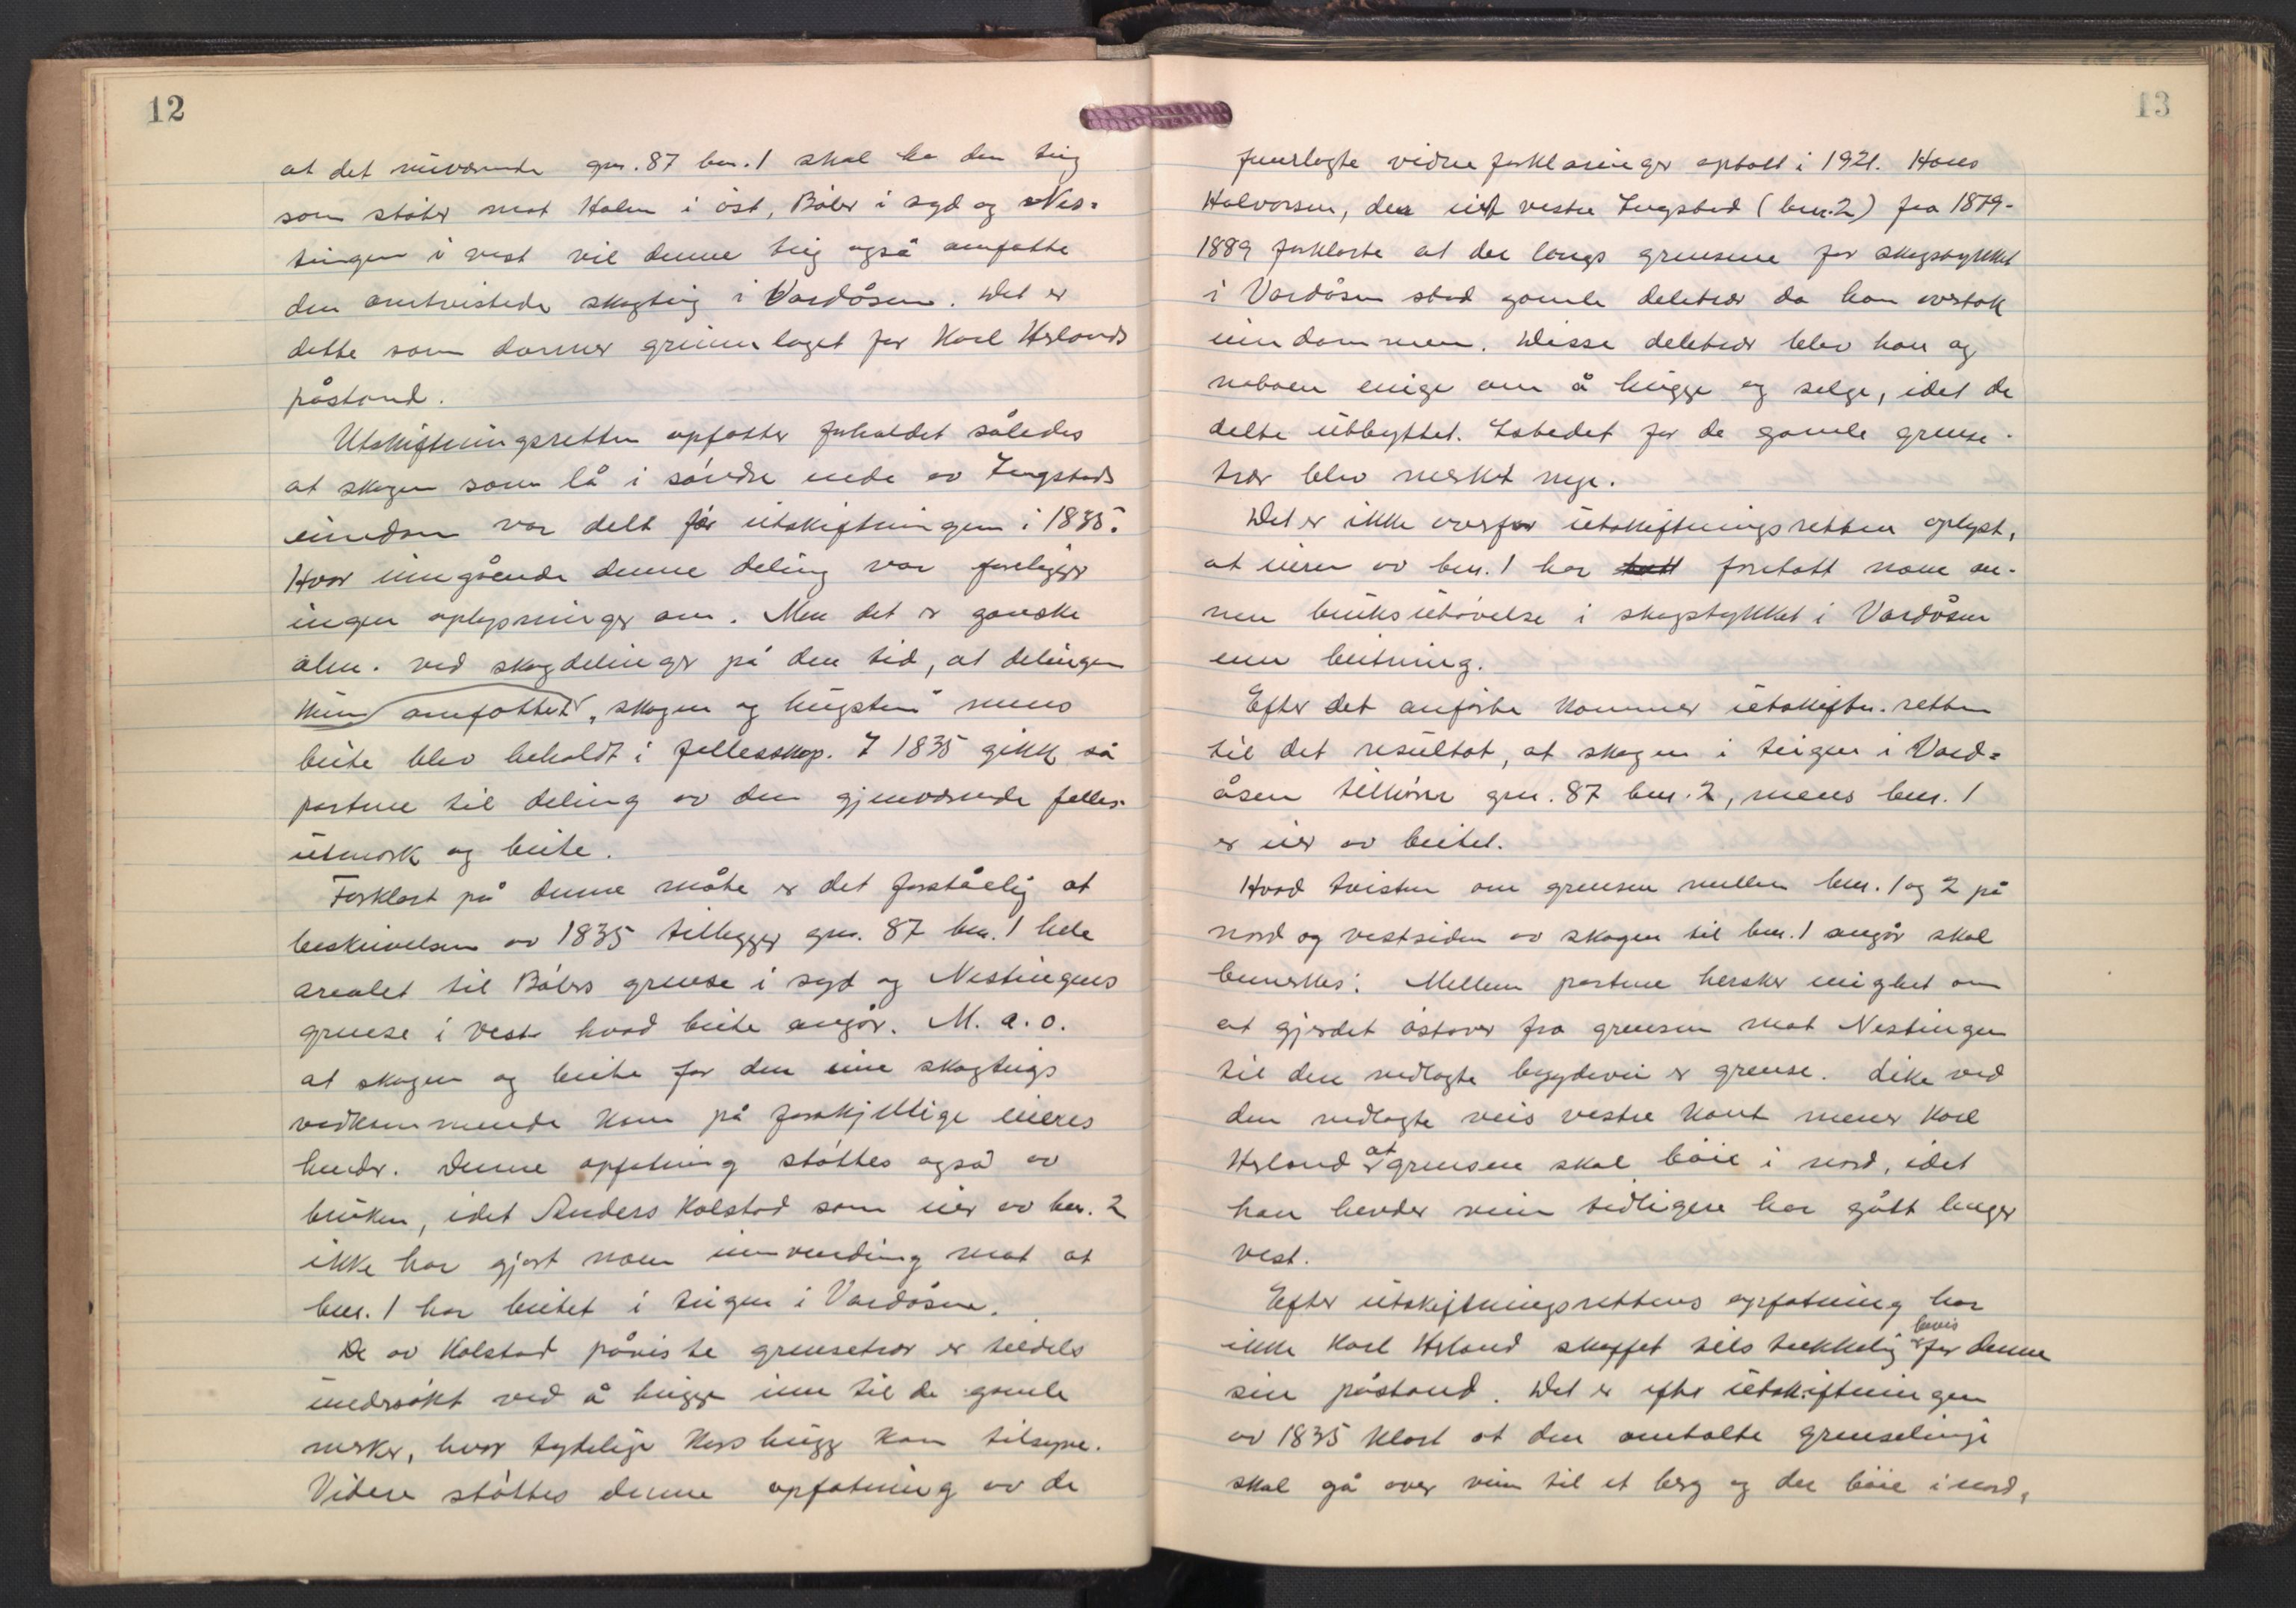 12
at det nuværende gnr. 87 bnr. 1 skal ha den teig
som støter mot Holen i øst, Båler i syd og Nes-
tingen i vest vil denne teig også omfatte
den omtvistede skogteig i Vardåsen. Det er
dette som danner grunnlaget for Karl Herlands
påstand.
Utskiftningsretten opfatter forholdet således
at skogen som lå i søndre ende av Engstads
eiendom var delt før utskiftningen i 1835.
Hvor inngående denne deling var foreligger
ingen oplysninger om. Men det er ganske
alm. ved skogdelinger på den tid, at delingen
kun omfattet „skogen og hugsten" mens
beite blev beholdt i fellesskap. I 1835 gikk så
partene til deling av den gjenværende felles-
utmark og beite.
Forklart på denne måte er det forståelig at
beskrivelsen av 1835 tillegger gnr. 87 bnr. 1 hele
arealet til Bølers grense i syd og Nestingens
grense i vest hvad beite angår. M. a. o.
at skogen og beite for den ene skogteigs
vedkommende kom på forskjellige eieres
hender. Denne opfatning støttes også av
bruken, idet Anders Kolstad som eier av bnr. 2
ikke har gjort noen innvending mot at
bnr. 1 har beitet i teigen i Vardåsen.
De av Kolstad påviste grensetrær er teildels
undersøkt ved å hugge inn til de gamle
merker, hvor tydelige kors hugg kan tilsyne.
Videre støttes denne opfatning av de
13
fremlagte vidneforklaringer optatt i 1921. Hans
Halvorsen, der eiet vestre Engstad (bnr. 2) fra 1879-
1889 forklarte at der langs grensene for skogstykket
i Vardåsen stod gamle deletrær da han overtok
eiendommen. Disse deletrær blev han og
naboen enige om å hugge og selge, idet de
delte utbyttet. Istedet for de gamle grense-
trær blev merket nye.
Det er ikke overfor utskiftningsretten oplyst,
at eieren av bnr. 1 har foretatt noen an-
nen bruksutøvelse i skogstykket i Vardåsen
enn beitning.
Efter det anførte kommer utskiftn. retten
til det resultat, at skogen i teigen i Vard-
åsen tilhører gnr. 87 bnr. 2, mens bnr. 1
er eier av beitet.
Hvad tvisten om grensen mellem bnr. 1 og 2 på
nord og vestsiden av skogen til bnr. 1 angår skal
bemerkes: Mellem partene hersker enighet om
at gjerdet østover fra grensen mot Nestingen
til den nedlagte bygdevei er grense. Like ved
den nedlagte veis vestre kant mener Karl
Herland at grensen skal bøie i nord, idet
han hevder veien tidligere har gått lenger
vest.
Efter utskiftningsrettens opfatning har
ikke Karl Herland skaffet tilstrekkelig bevis for denne
sin påstand. Det er efter utskiftningen
av 1835 klart at den omtalte grenselinje
skal gå over veien til et berg og der bøie i nord,